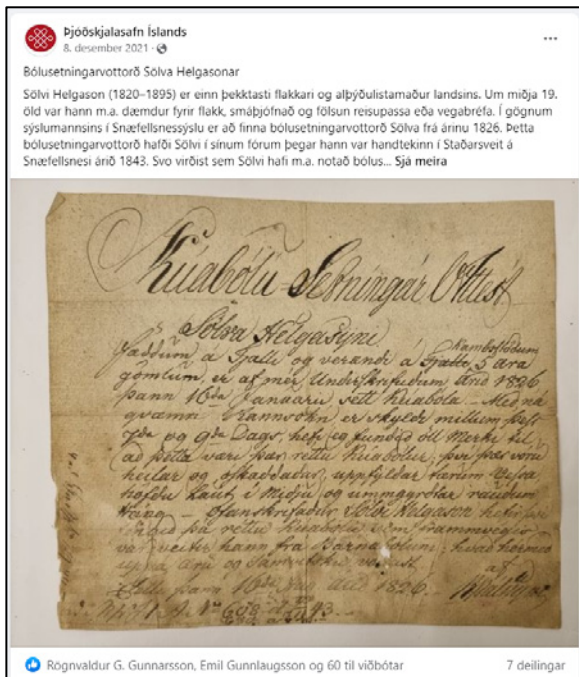 Þjóðskjalasafn Íslands
8. desember 2021 ·
Bólusetningarvottorð Sölva Helgasonar
Sölvi Helgason (1820–1895) er einn þekktasti flakkari og alþýðulistamaður landsins. Um miðja 19.
öld var hann m.a. dæmdur fyrir flakk, smáþjófnað og fölsun reisupassa eða vegabréfa. Í gögnum
sýslumannsins í Snæfellsnessýslu er að finna bólusetningarvottorð Sölva frá árinu 1826. Þetta
bólusetningarvottorð hafði Sölvi í sínum fórum þegar hann var handtekinn í Staðarsveit á
Snæfellsnesi árið 1843. Svo virðist sem Sölvi hafi m.a. notað bólus... Sjá meira
Kúabólu-Setningar Attest
Sölva Helgasyni
fæddum á Fjalli og verandi á 5 ára
gömlum, er af mér Underskrifudum Árid 1826
þann 16da Januarii sett kúabóla. Med ná
qvæmri Rannsókn er skyldi millum þess
7da og 9da Dags, hefi eg fundid öll Merki til
ad þetta væri þær réttu Kúabólur; því þær voru
heilar og óskaddadar, uppfyldar tærum Vessa,
höfdu Laut í Midju og ummgyrdtar raudum
Hring - Ofanskrifadur Sölvi Helgason hefir
þá réttu kúabólu
hann frá Barna Bólum;
þann 16da 1826.
Rögnvaldur G. Gunnarsson, Emil Gunnlaugsson og 60 til viðbótar
7 deilingar